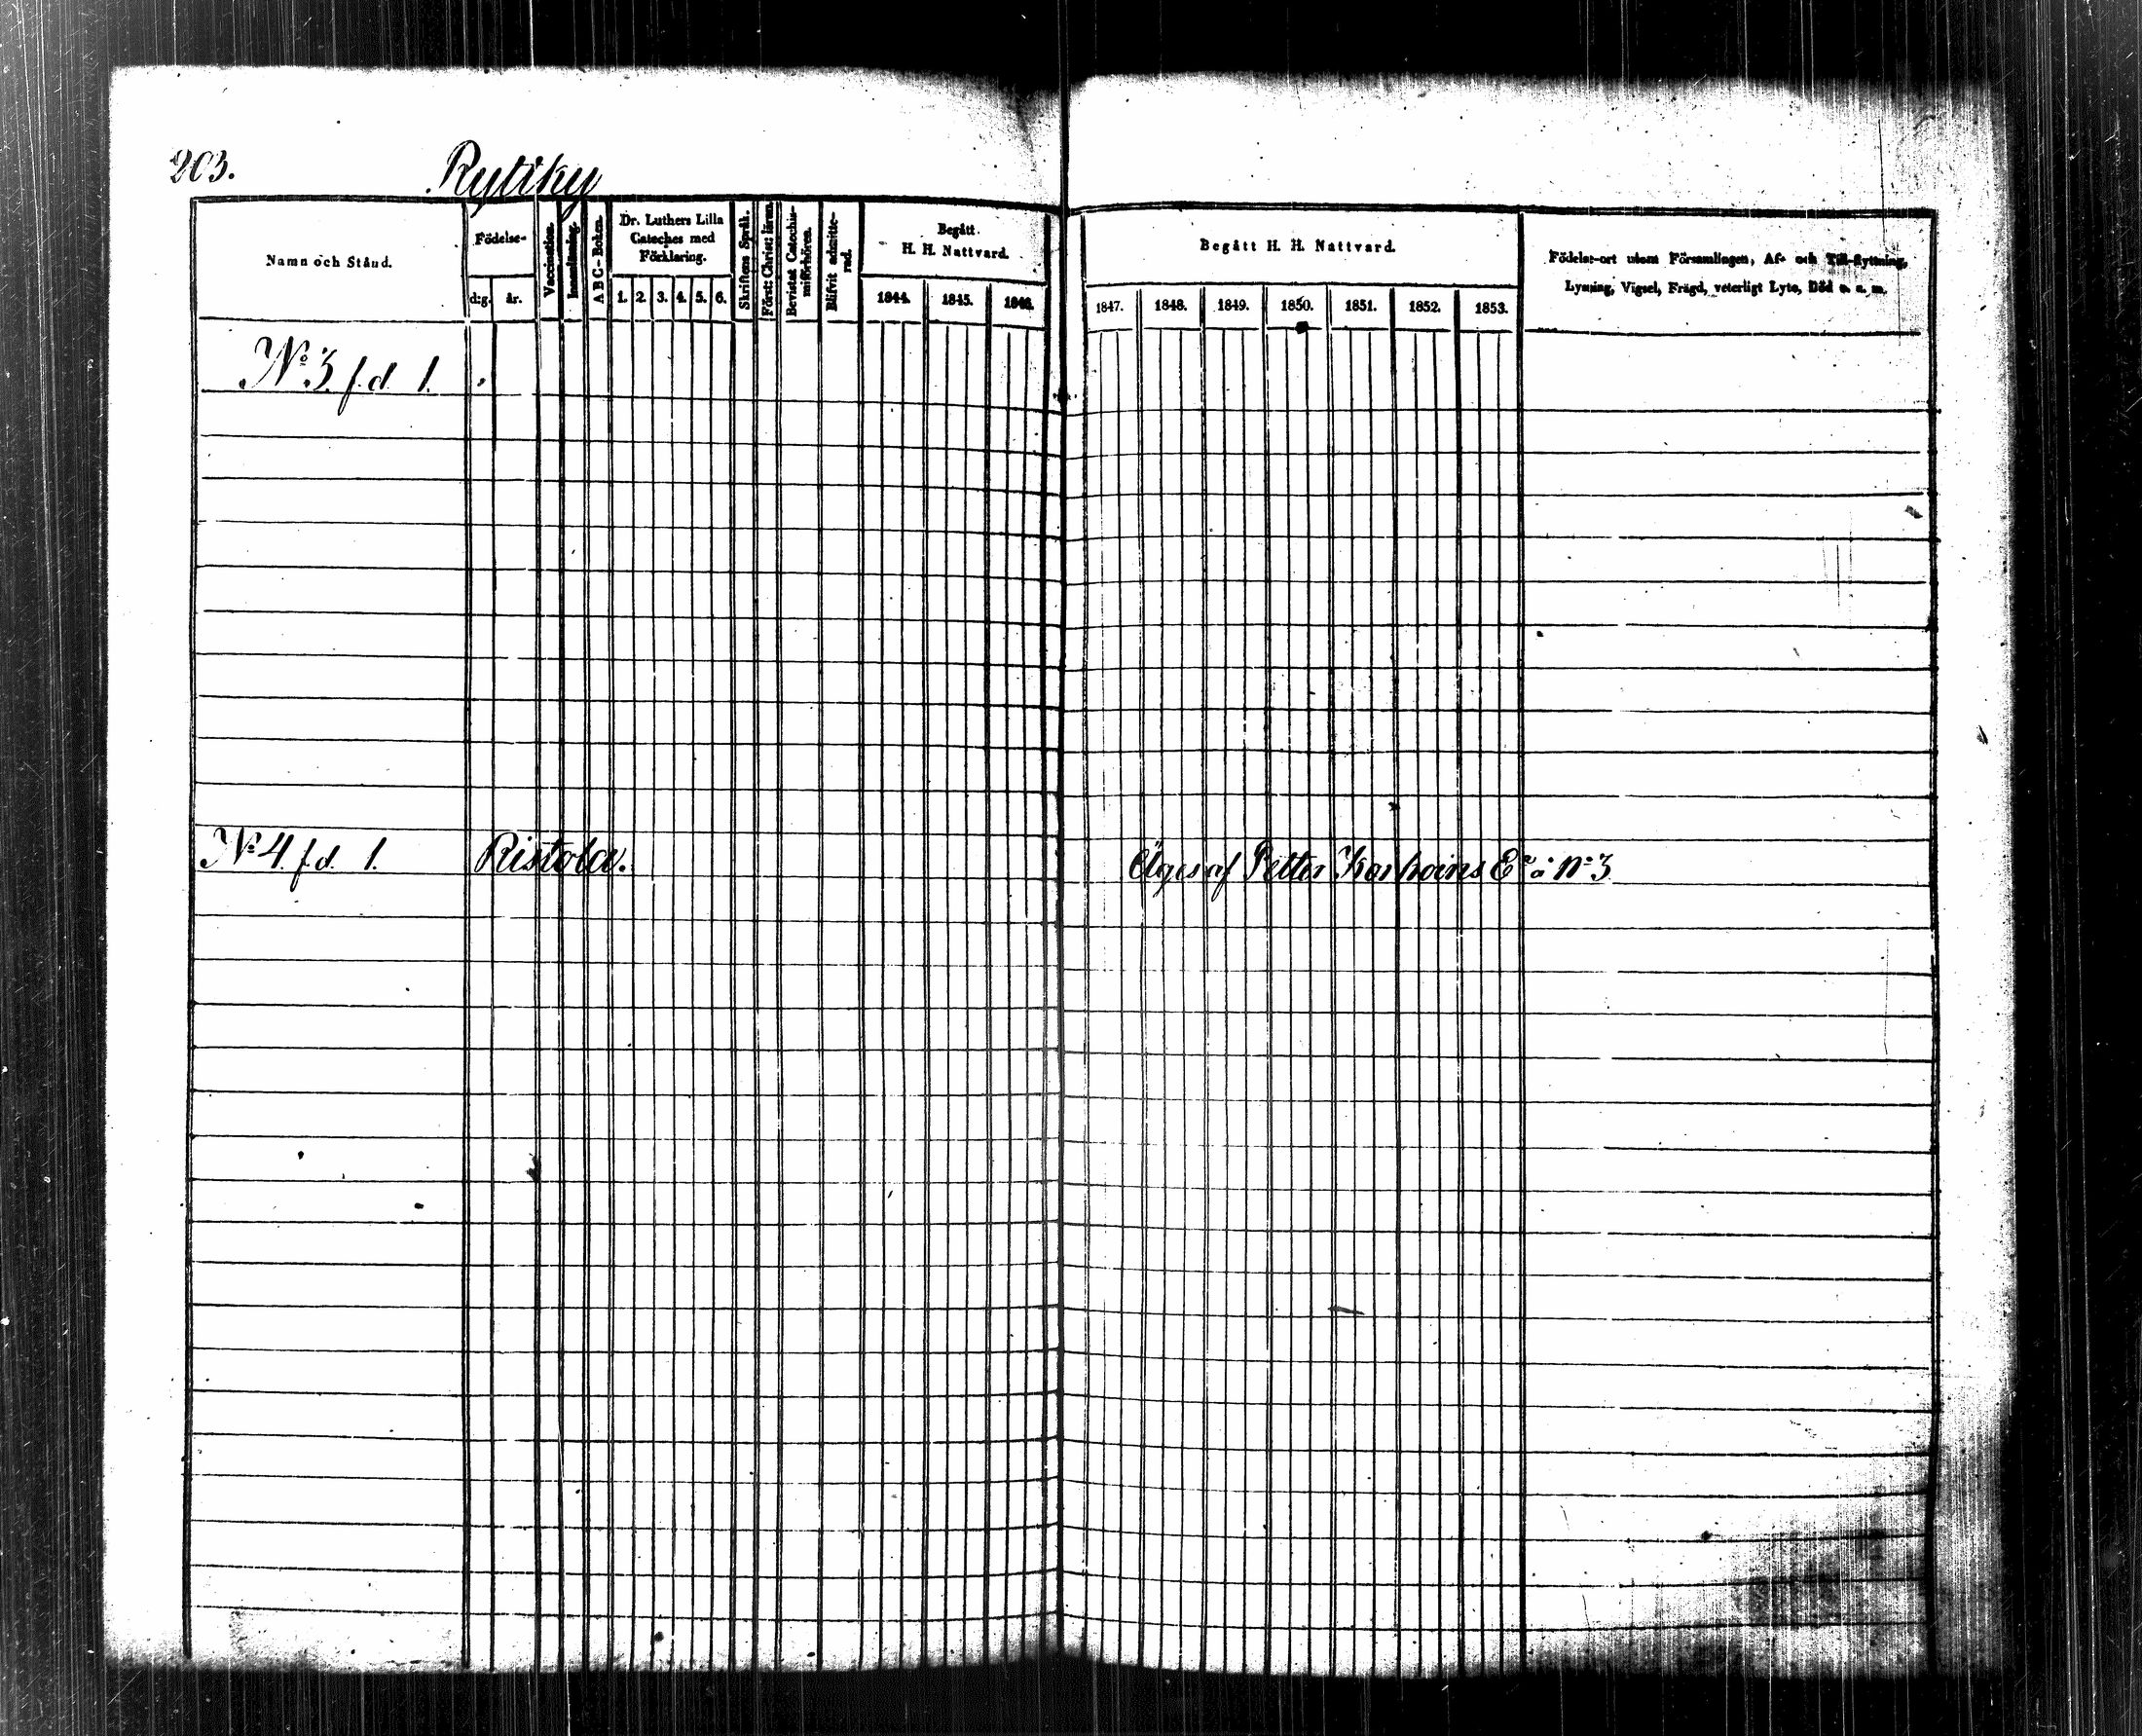 203. Rytiky
Namn och Stånd.
Födelse-
d:g. år.
Vaccination.
Innanläsning.
A B C - Boken.
Dr. Luthers Lilla
Cateches med
Förklaring.
1. 2. 3. 4. 5. 6.
Skriftens Språk.
Först: Christ: läran.
Bevistat Catechis-
miförhören.
Blifvit admitte-
rad.
Begått
H. H. Nattvard.
1844. 1845. 1846.
Begått H. H. Nattvard.
1847. 1848. 1849. 1850. 1851. 1852. 1853.
Födelse-ort utom Församlingen, Af- och Till-flyttning,
Lysning, Vigsel, Frägd, veterligt Lyte, Död o. s. m.
No 3 f.d 1.
No 4 f.d. 1. Ristola. Äges af Petter Korhoins Er å No 3